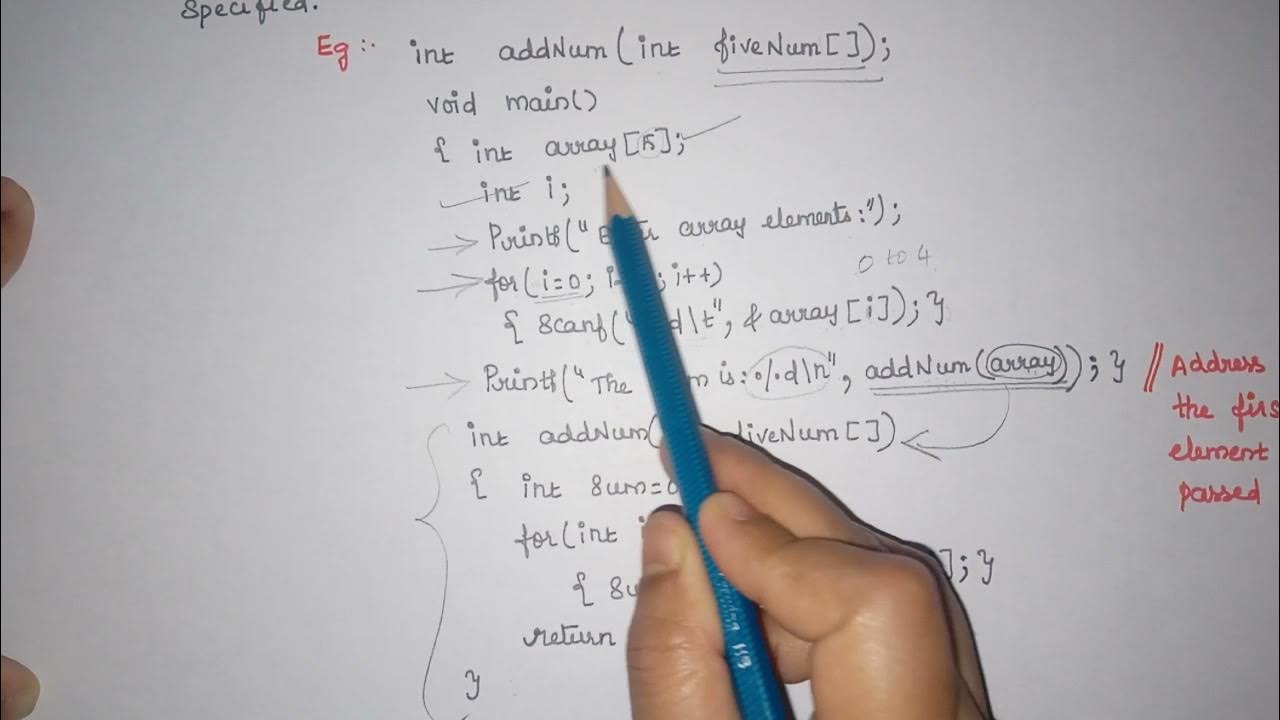 Specified.
Eg :- int addNum(int fiveNum[]);
void main()
{ int array[5];
int i;
Printf(" array elements:");
0 to 4
for(i=0; ; i++)
{ Scanf(" d\t", &array[i]); }
Printf("The is: %d\n", addNum(array)); } // Address
the firs
element
passed
int addNum( fiveNum[])
{ int Sum=0
for(int i
{ Su ]; }
return
}